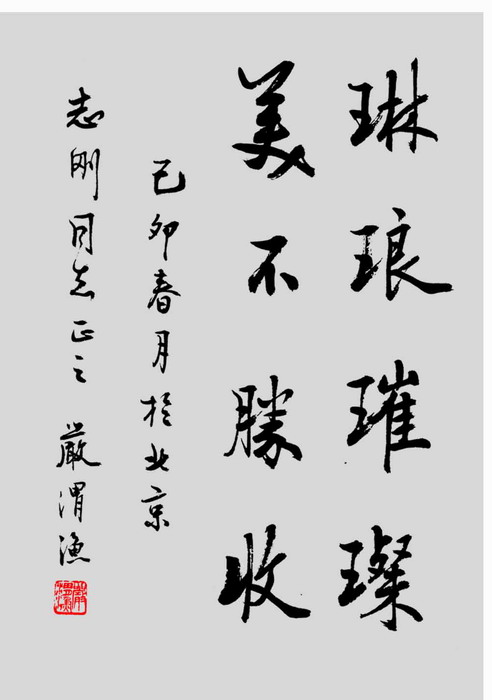 琳琅璀璨
美不勝收
己卯春月於北京
志刚同志正之 嚴渭漁